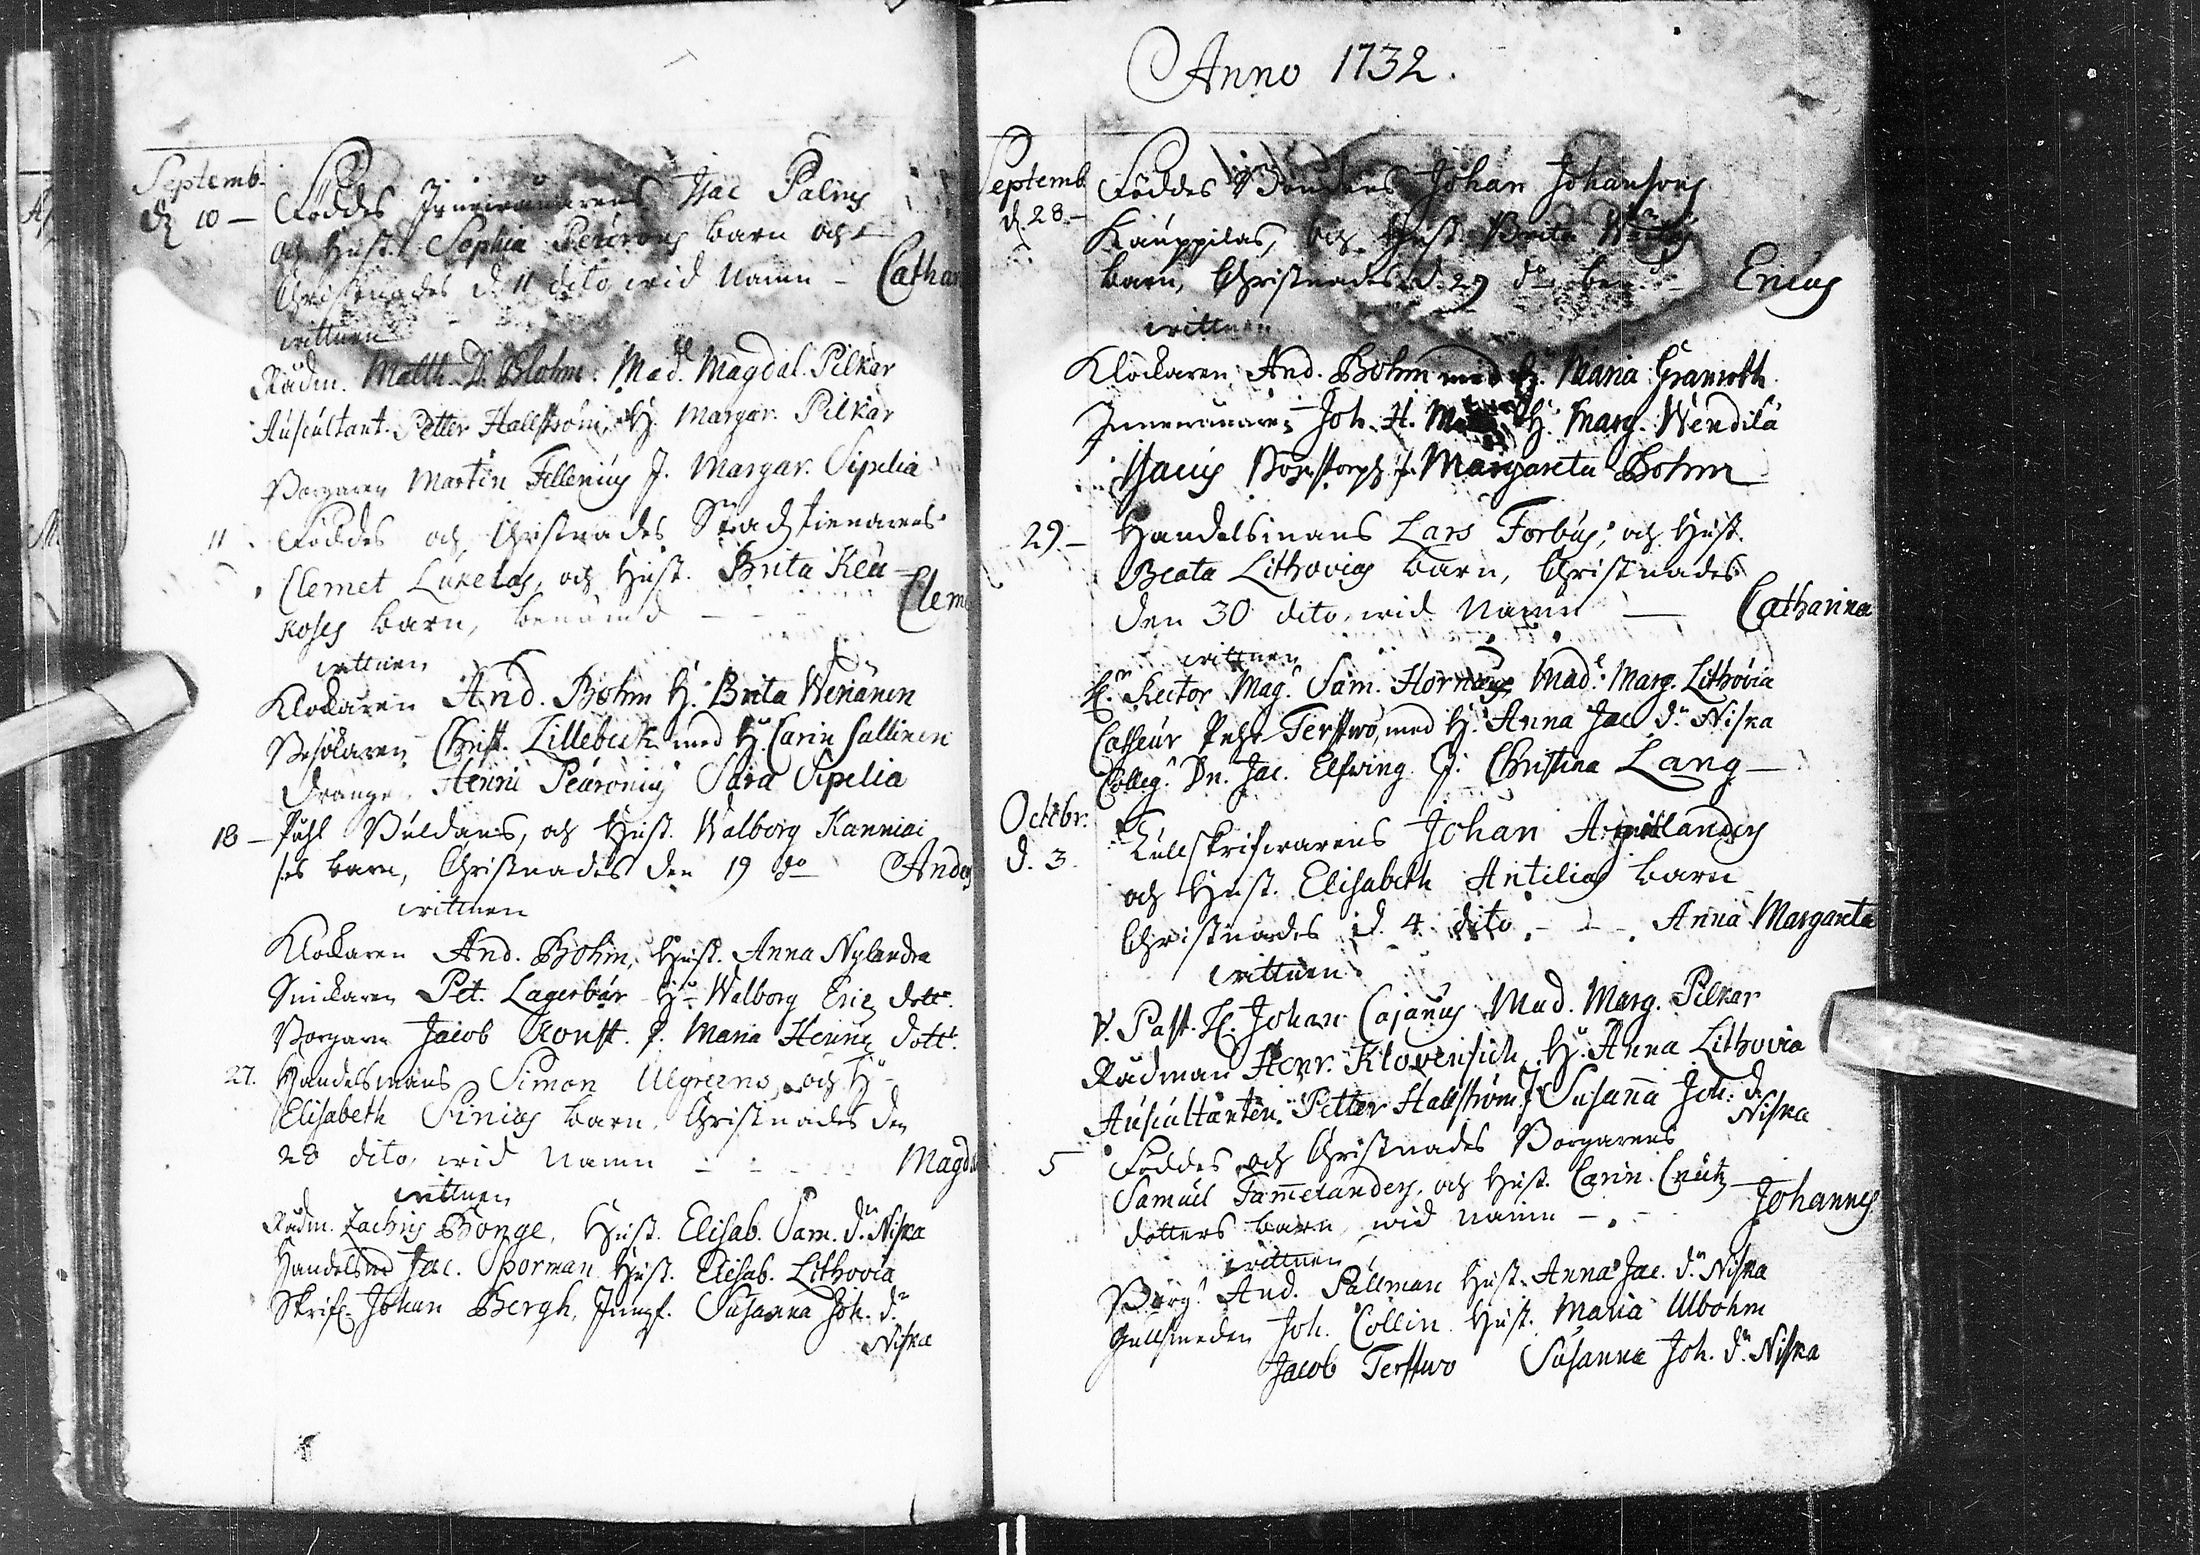 Septemb.
d. 10 — Föddes Innewånarens Isac Palins
och Hust. Sophia barn och
Christnades d. 11 dito wid Namn — Cathar
wittnen
Rådm. Matth. D. Blohm. Mad. Magdal. Pilkar
Auscultant. Petter Hallstrøm, H. Margar. Pilkar
Borgaren Martin Fellenius J. Margar. Sipelia
11. Föddes och Christnades Stadztienarens
Clemet Lukelas, och Hust. Brita Keu-
koses barn, benämd — Cleme
wittnen
Klockaren And. Bohm H. Brita Wenänen
Besökaren Christ. Lillebeck med H. Carin Sallinen
Drängen Henric Pearonius Sara Sipelia
18 — Påhl Buldans, och Hust. Walborg Kanniai
ses barn, Christnades den 19 do Anders
wittnen
Klockaren And. Bohm, Hust. Anna Nylandra
Snickaren Pet. Lagerbär Hu Walborg Eric dott.
Borgaren Jacob Konst. p. Maria Henric dott.
27. Handelsmans Simon Ulgreens, och Hu
Elisabeth Sinias barn, Christnades den
28 dito, wid Namn — Magda
wittnen
Rådm. Zachris Bonge, Hust. Elisab. Sam. dr. Niska
Handelsm Jac. Þorman Hust. Elisab. Lithovia
Skrifv. Johan Bergh, Jungf. Susanna Joh. dr
Niska
Anno 1732.
Septemb
d. 28 — Föddes Bondens Johan Johansons
Kauppilas, och Hust. Brita
barn, Christnades d. 29 do ben. Ericus
wittnen
Klockaren And. Bohm med H. Maria Granroth
Innewånaren Joh. H. H. Marg. Wendila
Isacus Borgstorph J. Margareta Bohm
29. — Handelsmans Lars Forbus, och Hust.
Beata Lithovias barn, Christnades
den 30 dito, wid Namn — Catharina
wittnen
H. Rector Mag. Sam. Hornæus, Mad. Marg. Lithovia
Casseur Pehr Terstwo, med H. Anna Jac dr Niska
Colleg. Dn. Jac. Elfwing J. Christina Lang —
Octobr.
d. 3. Tullskrifwarens Johan Armelanders
och Hust. Elisabeth Antilias barn
Christnades d. 4 dito. — Anna Margareta
wittnen
V. Past. H. Johan Cajanus Mad. Marg. Pilkar
Rådman Henr. Klowensich, H. Anna Lithovia
Auscultanten Petter Hallstrøm J. Susanna Joh. d.
Niska
5 Föddes och Christnades Borgarens
Samuel Tammelanders, och Hust. Carin Crütz
dotters barn, wid Namn — Johannes
wittnen
Borg. And. Pallman Hust. Anna Jac. dr. Niska
Gullsmeden Joh. Collin. Hust. Maria Ulbohm
Jacob Terstwo Susanna Joh. dr. Niska